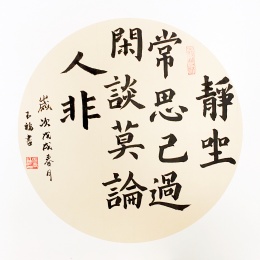 靜坐
常思己過
閑談莫論
人非
歲次戊戌春月